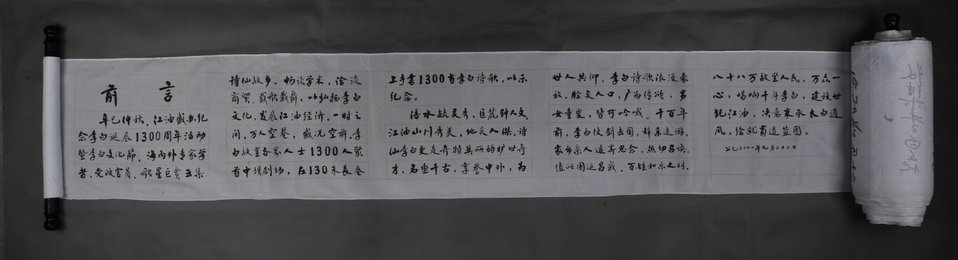 前言
辛巳仲秋，江油盛办纪
念李白诞辰1300周年活动
暨李白文化節，海内外专家学
者，党政官员，歌星巨贾云集
诗仙故乡，畅谈学术，洽谈
商贸，载歌载舞，以弘扬李白
文化，发展江油经济，一时之
间，万人空巷，盛况空前，李
白故里各界人士1300人聚
首中坝剧场，在130米长卷
上手書1300首李白诗歌，以示
纪念。
涪水毓灵秀，巨笔钟人文
江油山川秀美，地灵人傑，诗
仙李白更是奇特英丽的旷世奇
才，名垂千古，享誉中外，为
世人共仰，李白诗歌浪漫豪
放，脍炙人口，广为传颂，男
女童叟，皆可吟诵，千百年
前，李白仗剑去国，辞亲远游，
家乡亲人遥寄思念，热切召唤
值此国运昌盛，百姓和乐之时，
八十八万故里人民，万众一
心，唱响千年李白，建设世
纪江油，决意秉承太白遗
风，绘就蜀道蓝图。
公元二〇〇一年九月二十二日